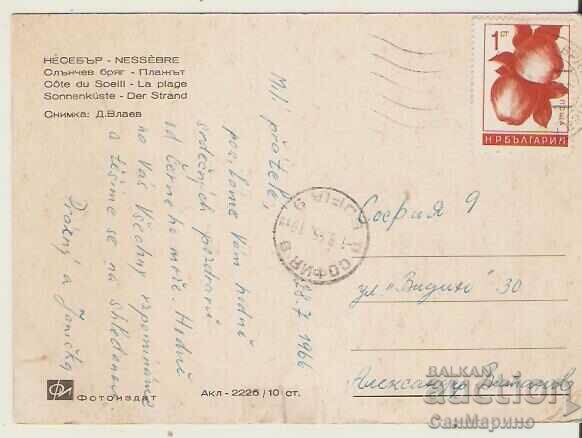 НЕСЕБЪР - NESSÈBRE
Слънчев бряг - Плажът
Côte du Soeill - La plage
Sonnenküste - Der Strand
Снимка: Д.Влаев
1 СТ
ПОЩА
НРБЪЛГАРИЯ
Milí přátelé,
posíláme Vám hodně
srdečných pozdravů
od Černého moře. Hodně
na Vás všechny vzpomínáme
a těšíme se na shledanou.
a Jančky
28.7 1966
СОФИЯ 9
София 9
ул. "Видин" 30
Александър
Фотоиздат
Акл - 2226 / 10 ст.
BALKAN
auction
СанМарино